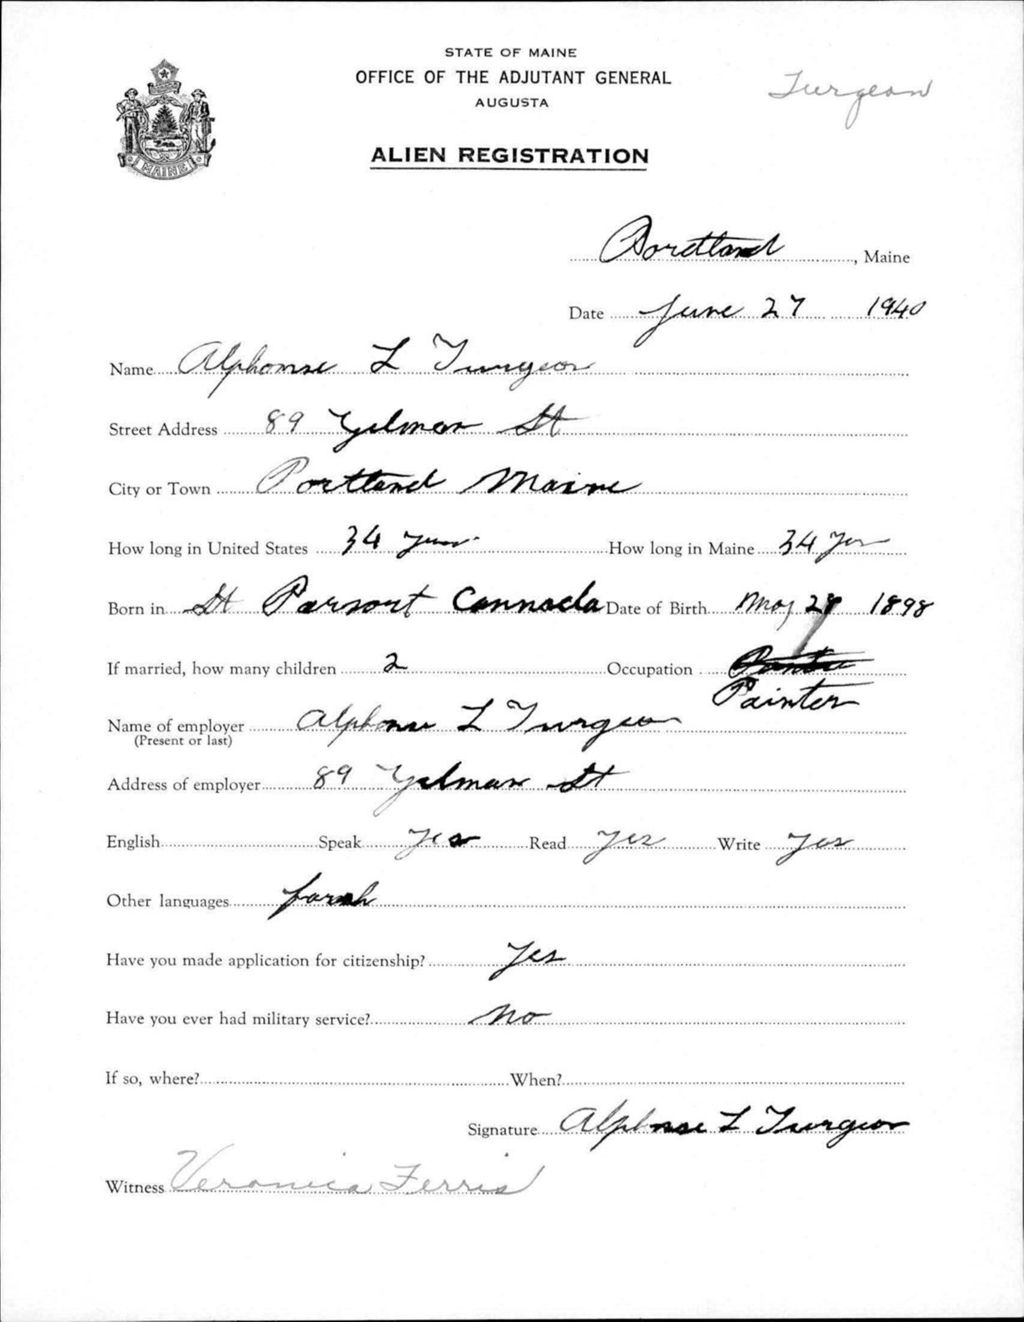 STATE OF MAINE
OFFICE OF THE ADJUTANT GENERAL
AUGUSTA
Turgeon
MAINE
ALIEN REGISTRATION
Portland, Maine
Date June 27 1940
Name Alphonse L Turgeon
Street Address 89 Gilman St
City or Town Portland Maine
How long in United States 34 years How long in Maine 34 yrs
Born in St Parsort Cannada Date of Birth May 28 1898
If married, how many children 2 Occupation
Painter
Name of employer Alphonse L Turgeon
(Present or last)
Address of employer 89 Gilman St
English Speak Yes Read Yes Write Yes
Other languages
Have you made application for citizenship? Yes
Have you ever had military service? No
If so, where? When?
Signature Alphonse L Turgeon
Witness Veronica Ferris